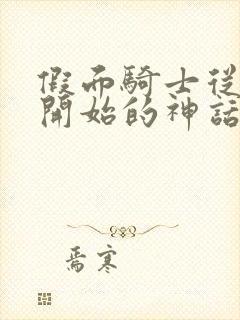 假面騎士從
開始的神話
焉寒